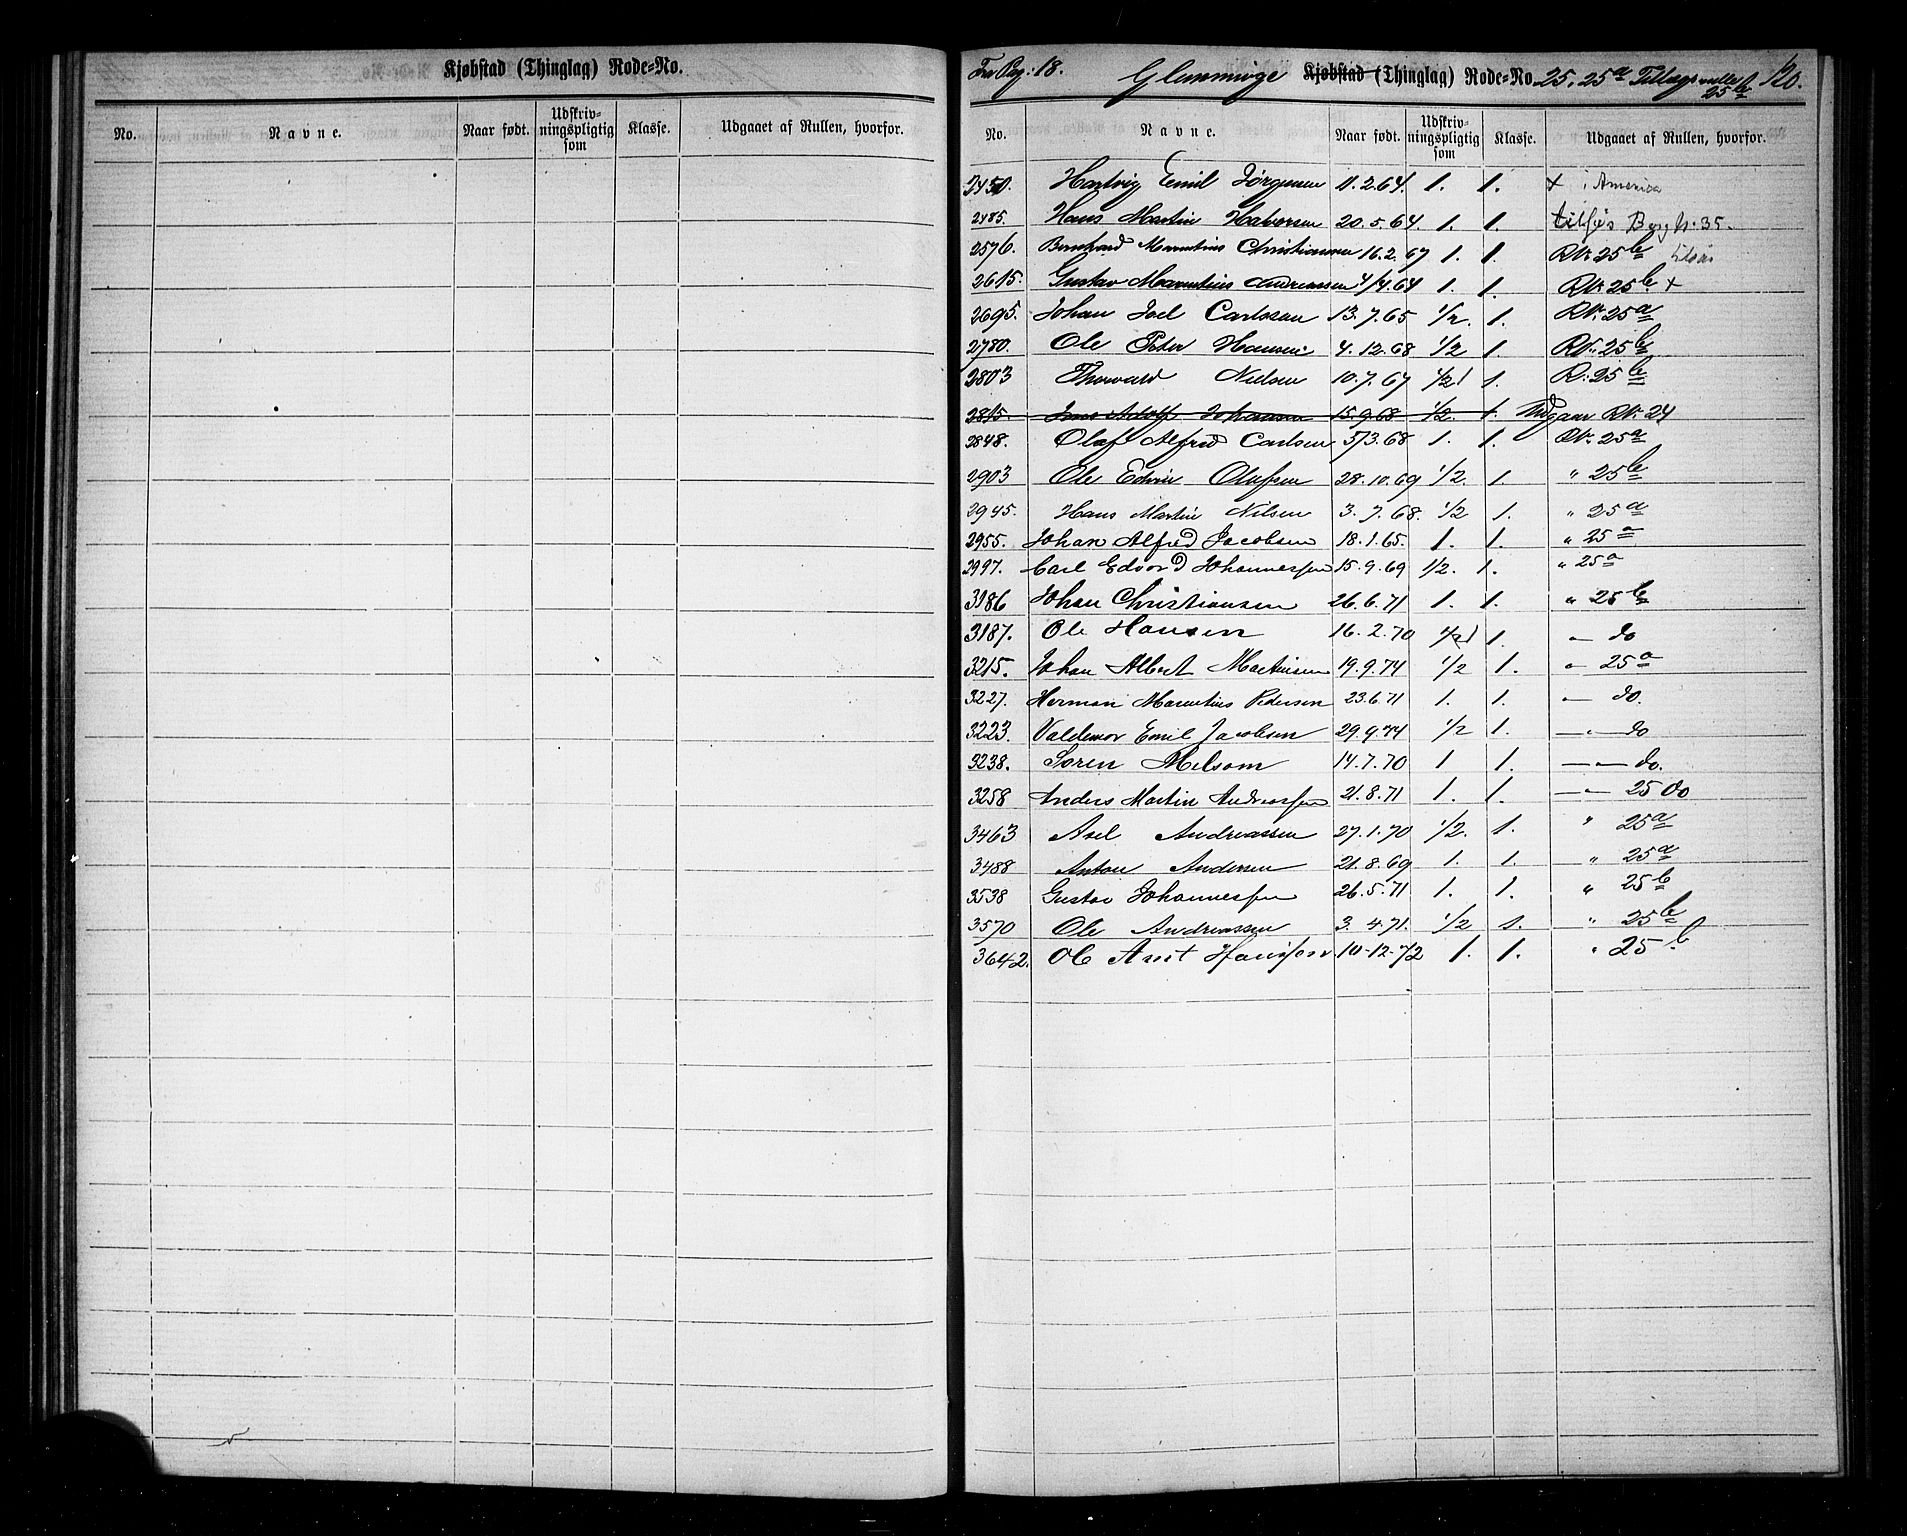 Kjøbstad (Thinglag) Rode=No.
No. Navne. Naar født. Udskriv-ningspligtig som Klasse. Udgaaet af Rullen, hvorfor.
Fra Pag: 18. Glemminge Kjøbstad (Thinglag) Rode=No. 25, 25a Tillægsrulle 25b 120.
No. Navne. Naar født. Udskriv-ningspligtig som Klasse. Udgaaet af Rullen, hvorfor.
2450. Hartvig Emil Jørgensen 11.2.64. 1. 1. + i America
2485. Hans Martin Halvorsen 20.5.64. 1. 1. Borg N. 35.
2576. Bernhard Marentius Christiansen 16.2.67 1. 1. RN: 25b
2615. Gustav Marentius Andreassen 4/4.64 1. 1. RN: 25b +
2695. Johan Joel Carlsson 13.7.65 1/2. 1. RN: 25a
2780. Ole Peter Hansen 4.12.68 1/2 1. RN: 25b
2803 Thorvard Nielsen 10.7.67 1/2 1. R: 25b
2815. Jens Adolf Johansen 15.9.68 1/2. 1. Udgaar RN. 24
2848. Olaf Alfred Carlsen 5/3.68 1. 1. RN. 25a
2903 Ole Edvin Olufsen 28.10.69 1/2. 1. " 25b
2945. Hans Martin Nilsen 3.7.68. 1/2 1. " 25a
2955. Johan Alfred Jacobsen 18.1.65. 1. 1. " 25a
2997. Carl Edvard Johannessen 15.9.69 1/2. 1. " 25a
3186 Johan Christiansen 26.6.71 1. 1. " 25b
3187. Ole Hansen 16.2.70 1/2 1. — do
3215. Johan Albert Martinsen 19.9.74 1/2 1. " 25a
3227. Herman Marentius Pedersen 23.6.71 1. 1. — do.
3223. Valdemar Emil Jacobsen 29.9.74 1/2 1. —"— do
3238. Søren Melsom 14.7.70 1 1. —"— do.
3258 Anders Martin Andreassen 21.8.71 1. 1. —"— 25 do
3463 Axel Andreassen 27.1.70 1/2. 1. " 25a
3488 Anton Andersen 21.8.69 1. 1. " 25a
3538 Gustav Johannessen 26.5.71 1. 1. " 25b
3570 Ole Andreassen 3.4.71. 1/2 1. " 25b
3642. Ole Anet Hansson 10-12-72 1. 1. " 25b